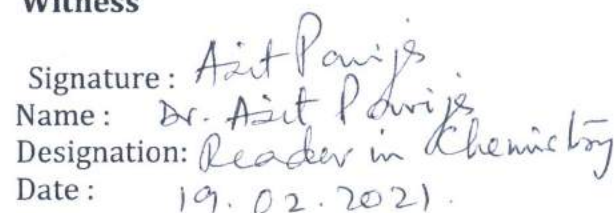 Witness
Signature : Asit
Name : Dr. Asit
Designation: Reader in Chemistry
Date : 19.02.2021.